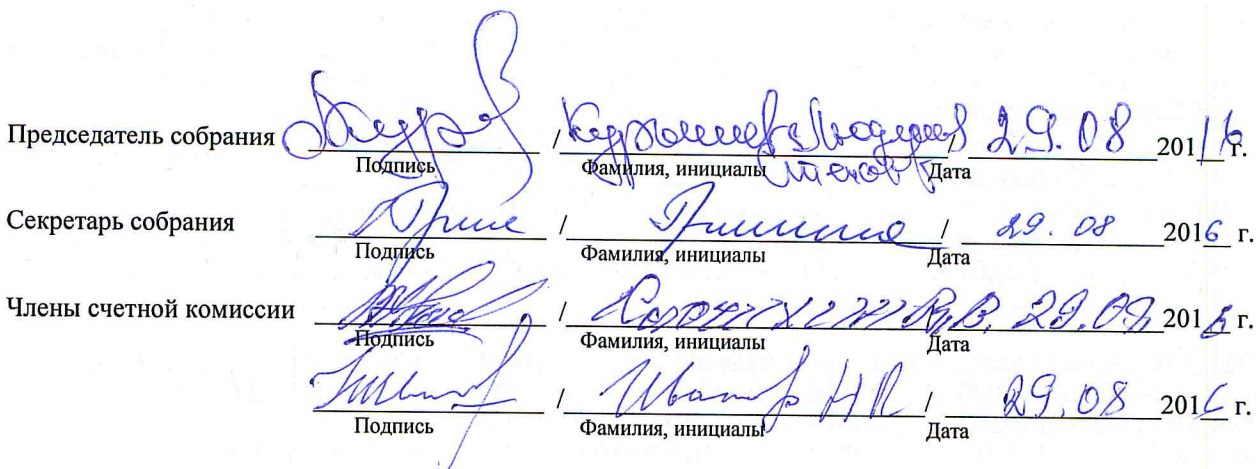 Председатель собрания / / 29.08 2016 г.
Подпись Фамилия, инициалы Дата
Секретарь собрания / / 29.08 2016 г.
Подпись Фамилия, инициалы Дата
Члены счетной комиссии / В.В. 29.08 2016 г.
Подпись Фамилия, инициалы Дата
/ Иванов НП / 29.08 2016 г.
Подпись Фамилия, инициалы Дата